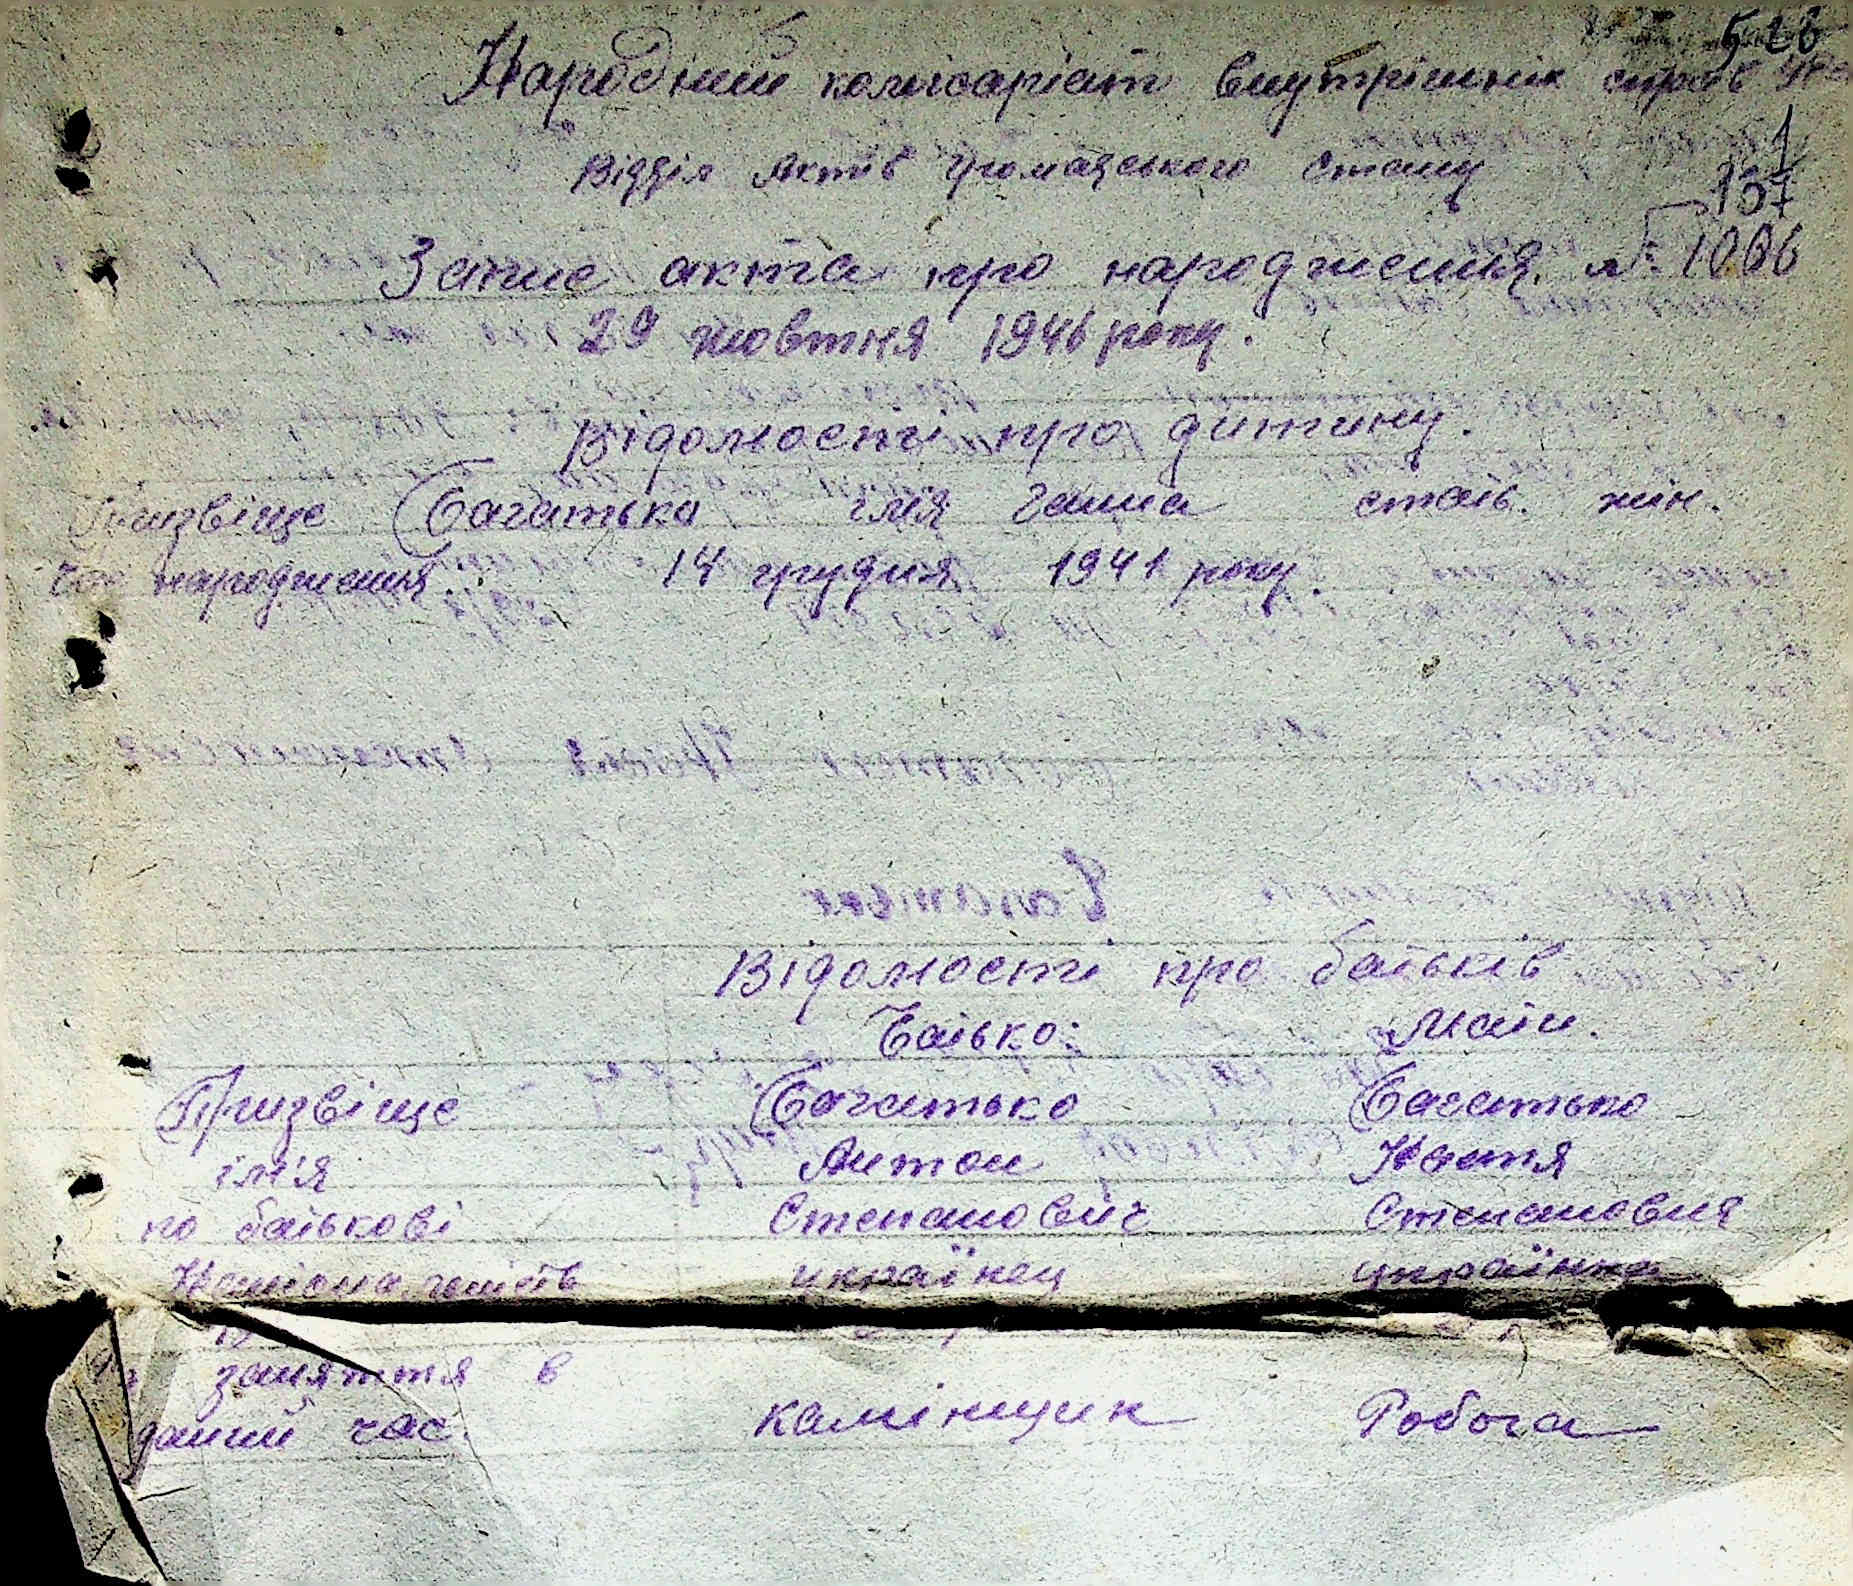 528
Народний комісаріат внутрішніх справ
Відділ Актів Громадського Стану
1
157
Запис акта про народження № 1086
29 жовтня 1946 року.
Відомості про дитину.
Призвіще Богатько ім'я Ганна стать. жін.
Час народження: 14 грудня 1941 року.
Відомості про батьків
Батько: Мати.
Призвіще Богатько Богатько
ім'я Антон Настя
по батькові Степанович Степановна
Національність українец українка
заняття в
даний час. камінщик Робоча